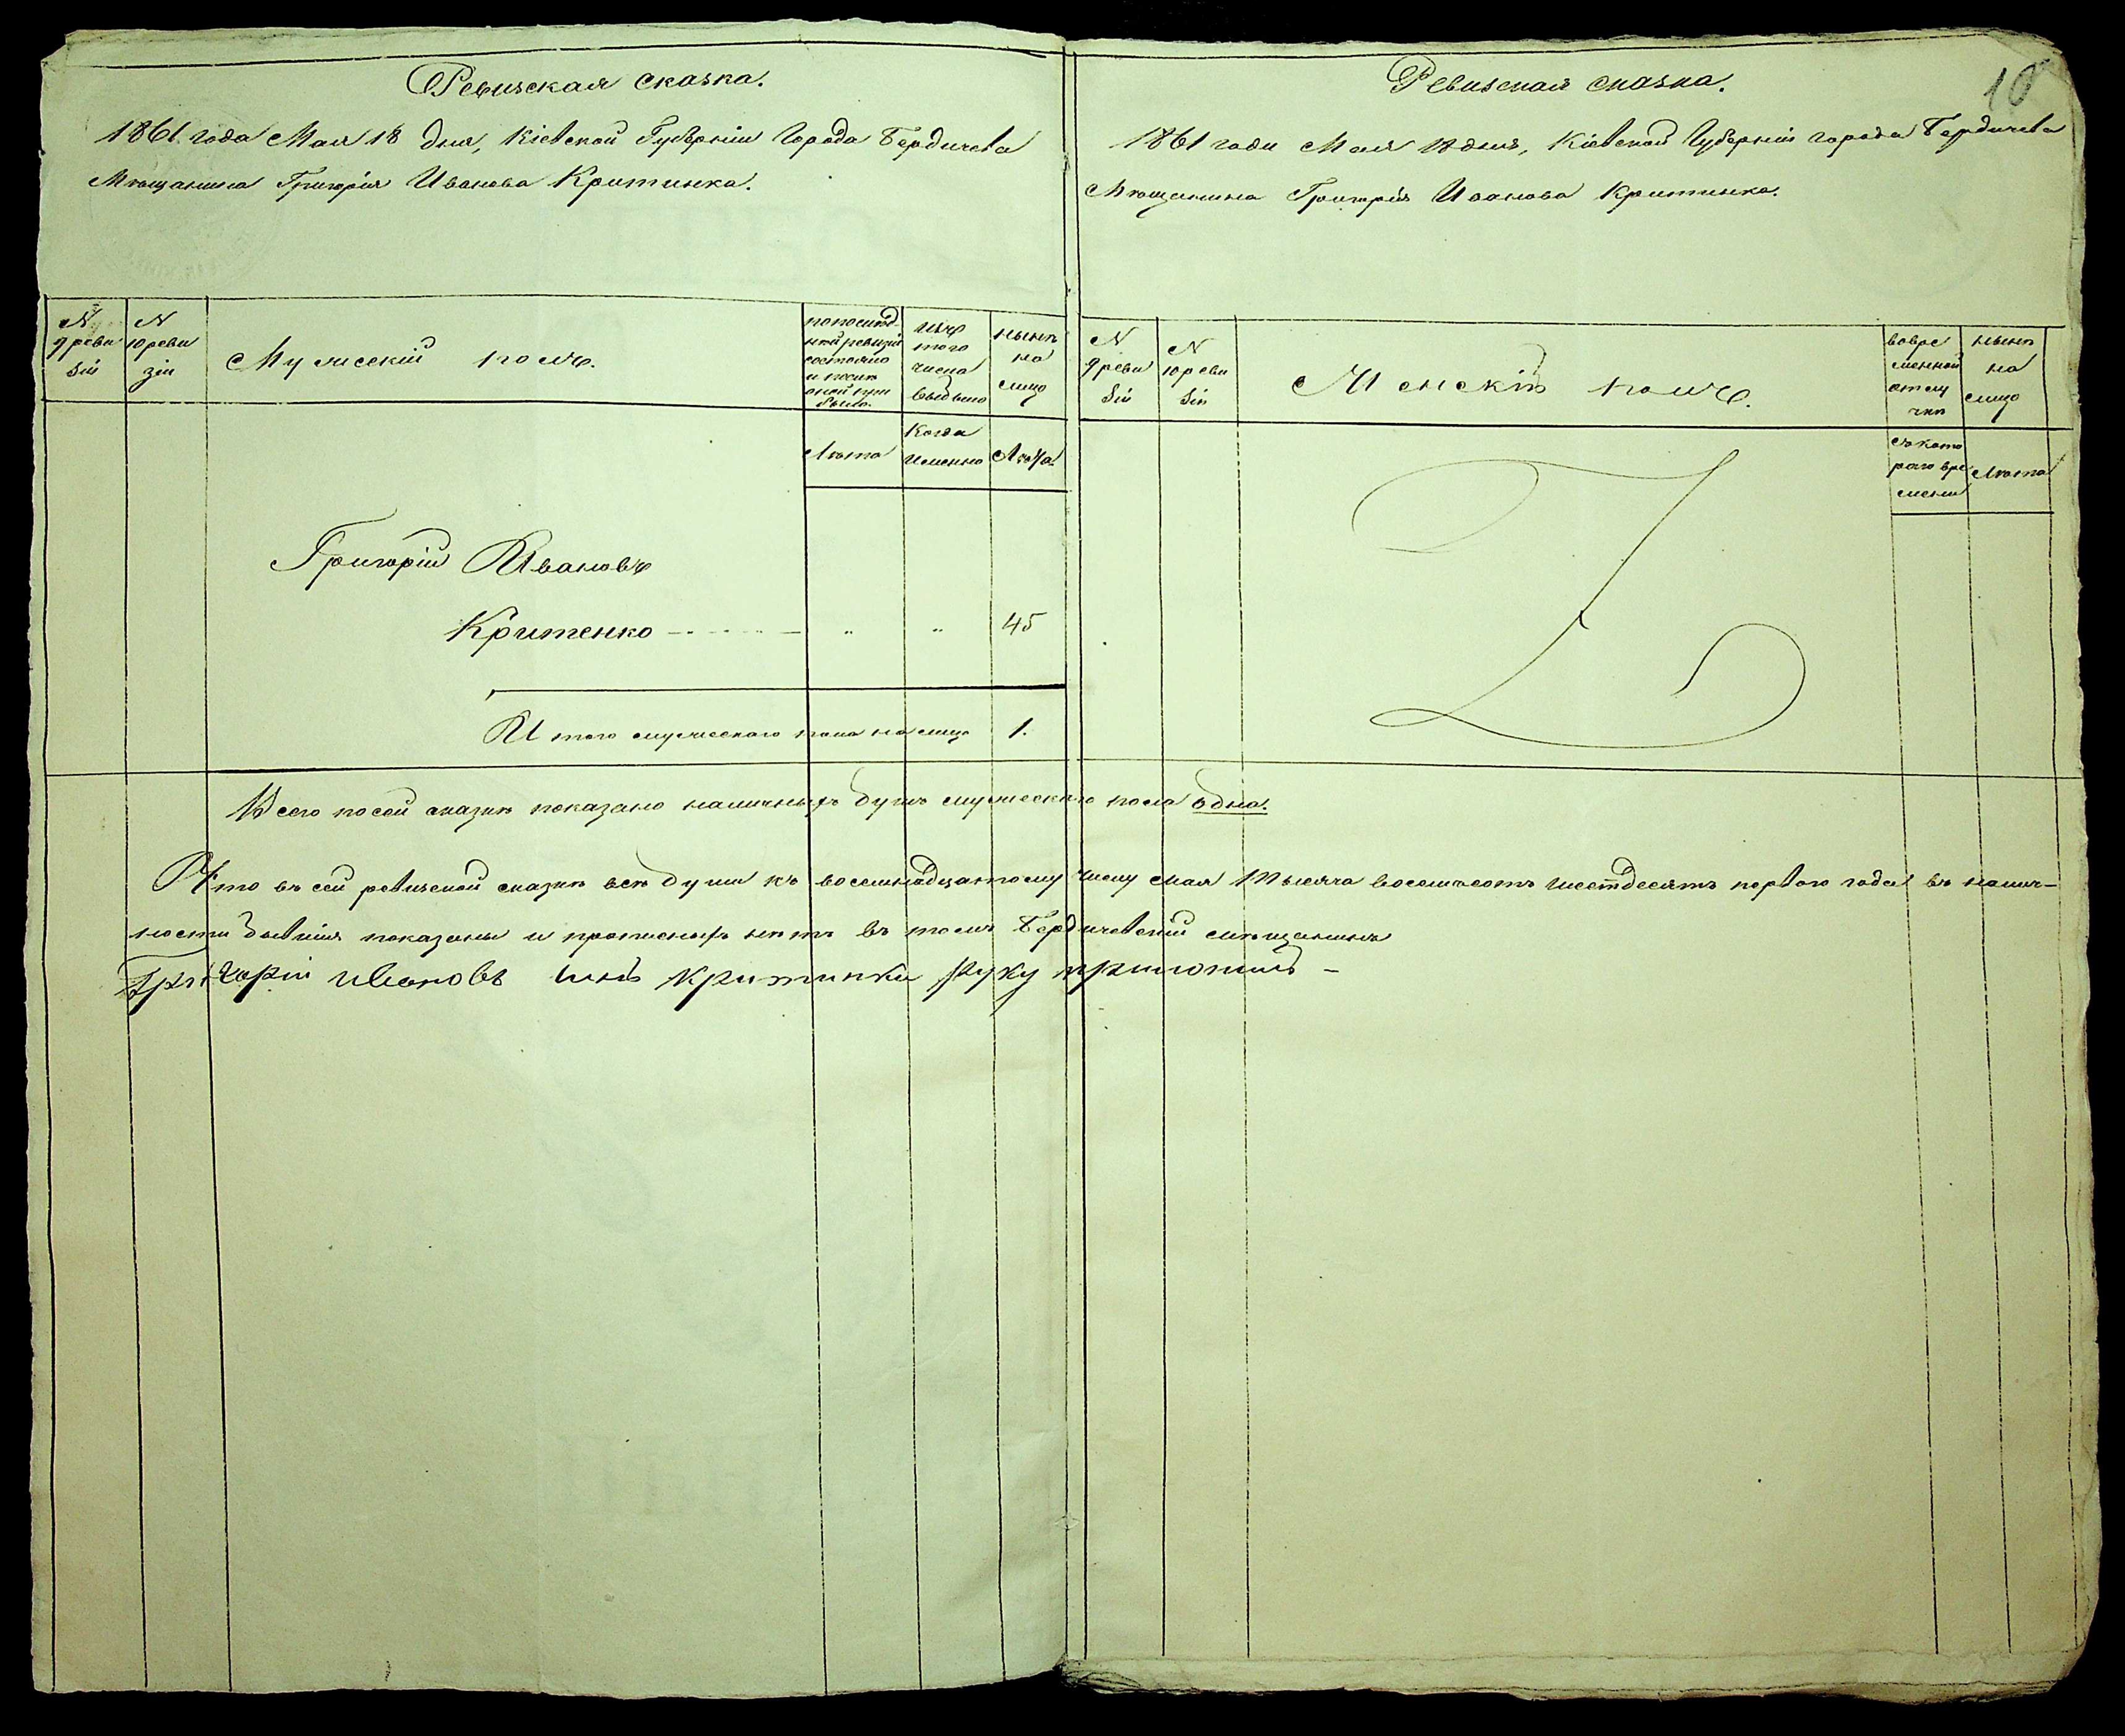 Ревизская сказка.
1861 года Мая 18 дня, Кіевской Губерніи Города Бердичева
Мѣщанина Григорія Иванова Критинка.
N 9 реви зіи
N 10 реви зіи
Мужескій полъ.
по послѣд-
ней ревизіи
состояло
и послѣ
оной при
было.
изъ
того
числа
выбыло
нынѣ
на
лицо
Лѣта
Когда
именно
Лѣта
Григорій Ивановъ
Критенко - - - - - " " 45
И того мужескаго пола налицо 1.
Ревизская сказка.
10
1861 года Мая 18 дня, Кіевской Губерніи города Бердичева
Мѣщанина Григорія Иванова Критинка.
N 9 реви зіи
N 10 реви зіи
Женскій полъ.
вовре
менной
отлу
чкѣ
нынѣ
на
лицо
съ кото
раго вре
мени
Лѣта
Всего по сей сказкѣ показано наличныхъ душъ мужескаго пола одна.
Что въ сей ревизской сказкѣ всѣ души къ восемнадцатому числу мая тысяча восемьсотъ шестдесятъ перваго года въ налич-
ности бывшія показаны и прописныхъ нѣтъ въ томъ Бердичевскій мѣщанинъ
Григорій ивановъ Критинка руку приложилъ -